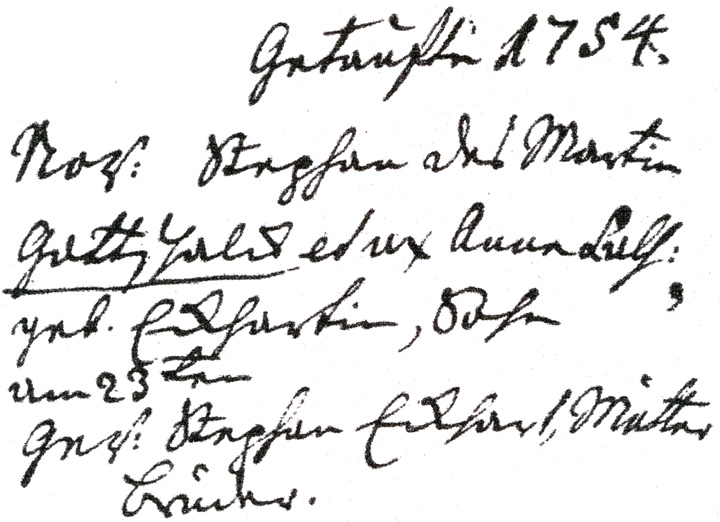 Getaufte 1754.
Nov: Stephan des Martin
Gottschalck et ux Anna Kath:
geb. Eckhartin, Sohn
am 23ten
Gev: Stephan Eckhart, Mutter
bruder.